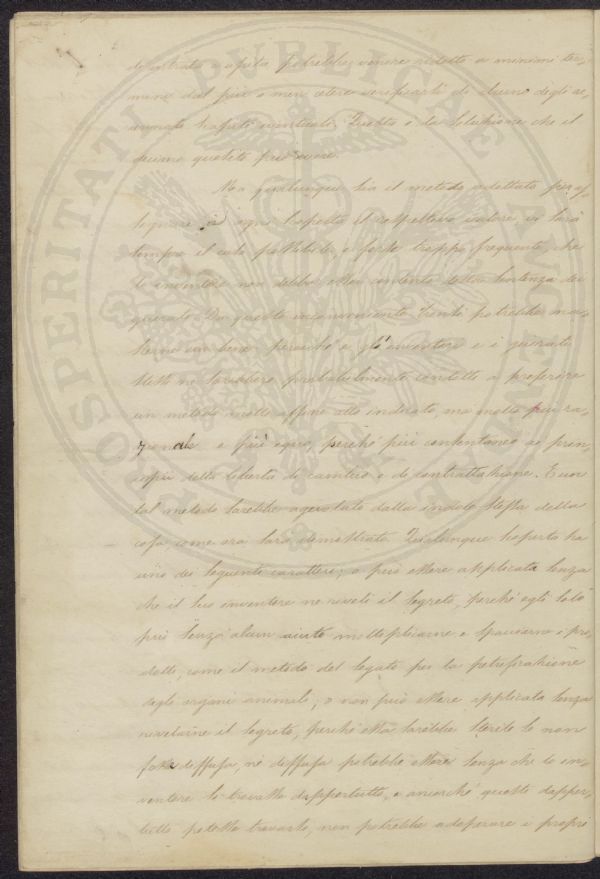 da entrata o sepolta potrebbe venire ridotto a minimi ter-
mine dal più o men celere verificarsi di alcuno degli ac-
cennati trapassi eventuali. Questa è la soluzione che il
decimo quesito può avere.
Ma qualunque sia il metodo adottato per as-
segnare ad ogni scoperta il rispettivo valore, vi sarà
sempre il caso possibile, e forse troppo frequente, che
lo inventore non debba essere contento della sentenza dei
giurati. Da questo inconveniente tanti potrebbe na-
scerne un bene, perocchè e gl'inventori e i giurati
stessi ne sarebbero probabilmente condotti a preferire
un metodo molto affine allo indicato, ma molto più ra-
zionale e più equo, perchè più consentaneo ai prin-
cipii della libertà di cambio e di contrattazione. E un
tal metodo sarebbe agevolato dalla indole stessa della
cosa come ora sarà dimostrato. Qualunque scoperta ha
uno dei seguenti caratteri; o può essere applicata senza
che il suo inventore ne riveli il segreto, perchè egli solo
può senza alcun aiuto moltiplicarne e spacciarne i pro-
dotti, come il metodo del Segato per la petrificazione
degli organi animali; o non può essere applicata senza
rivelarne il segreto, perchè essa sarebbe sterile se non
fosse diffusa, nè diffusa potrebbe essere senza che lo in-
ventore si trovasse dappertutto, e ancorchè questi dapper-
tutto potesse trovarsi, non potrebbe adoperare i proprii
PROSPERITATI PUBLICAE AUGENDAE